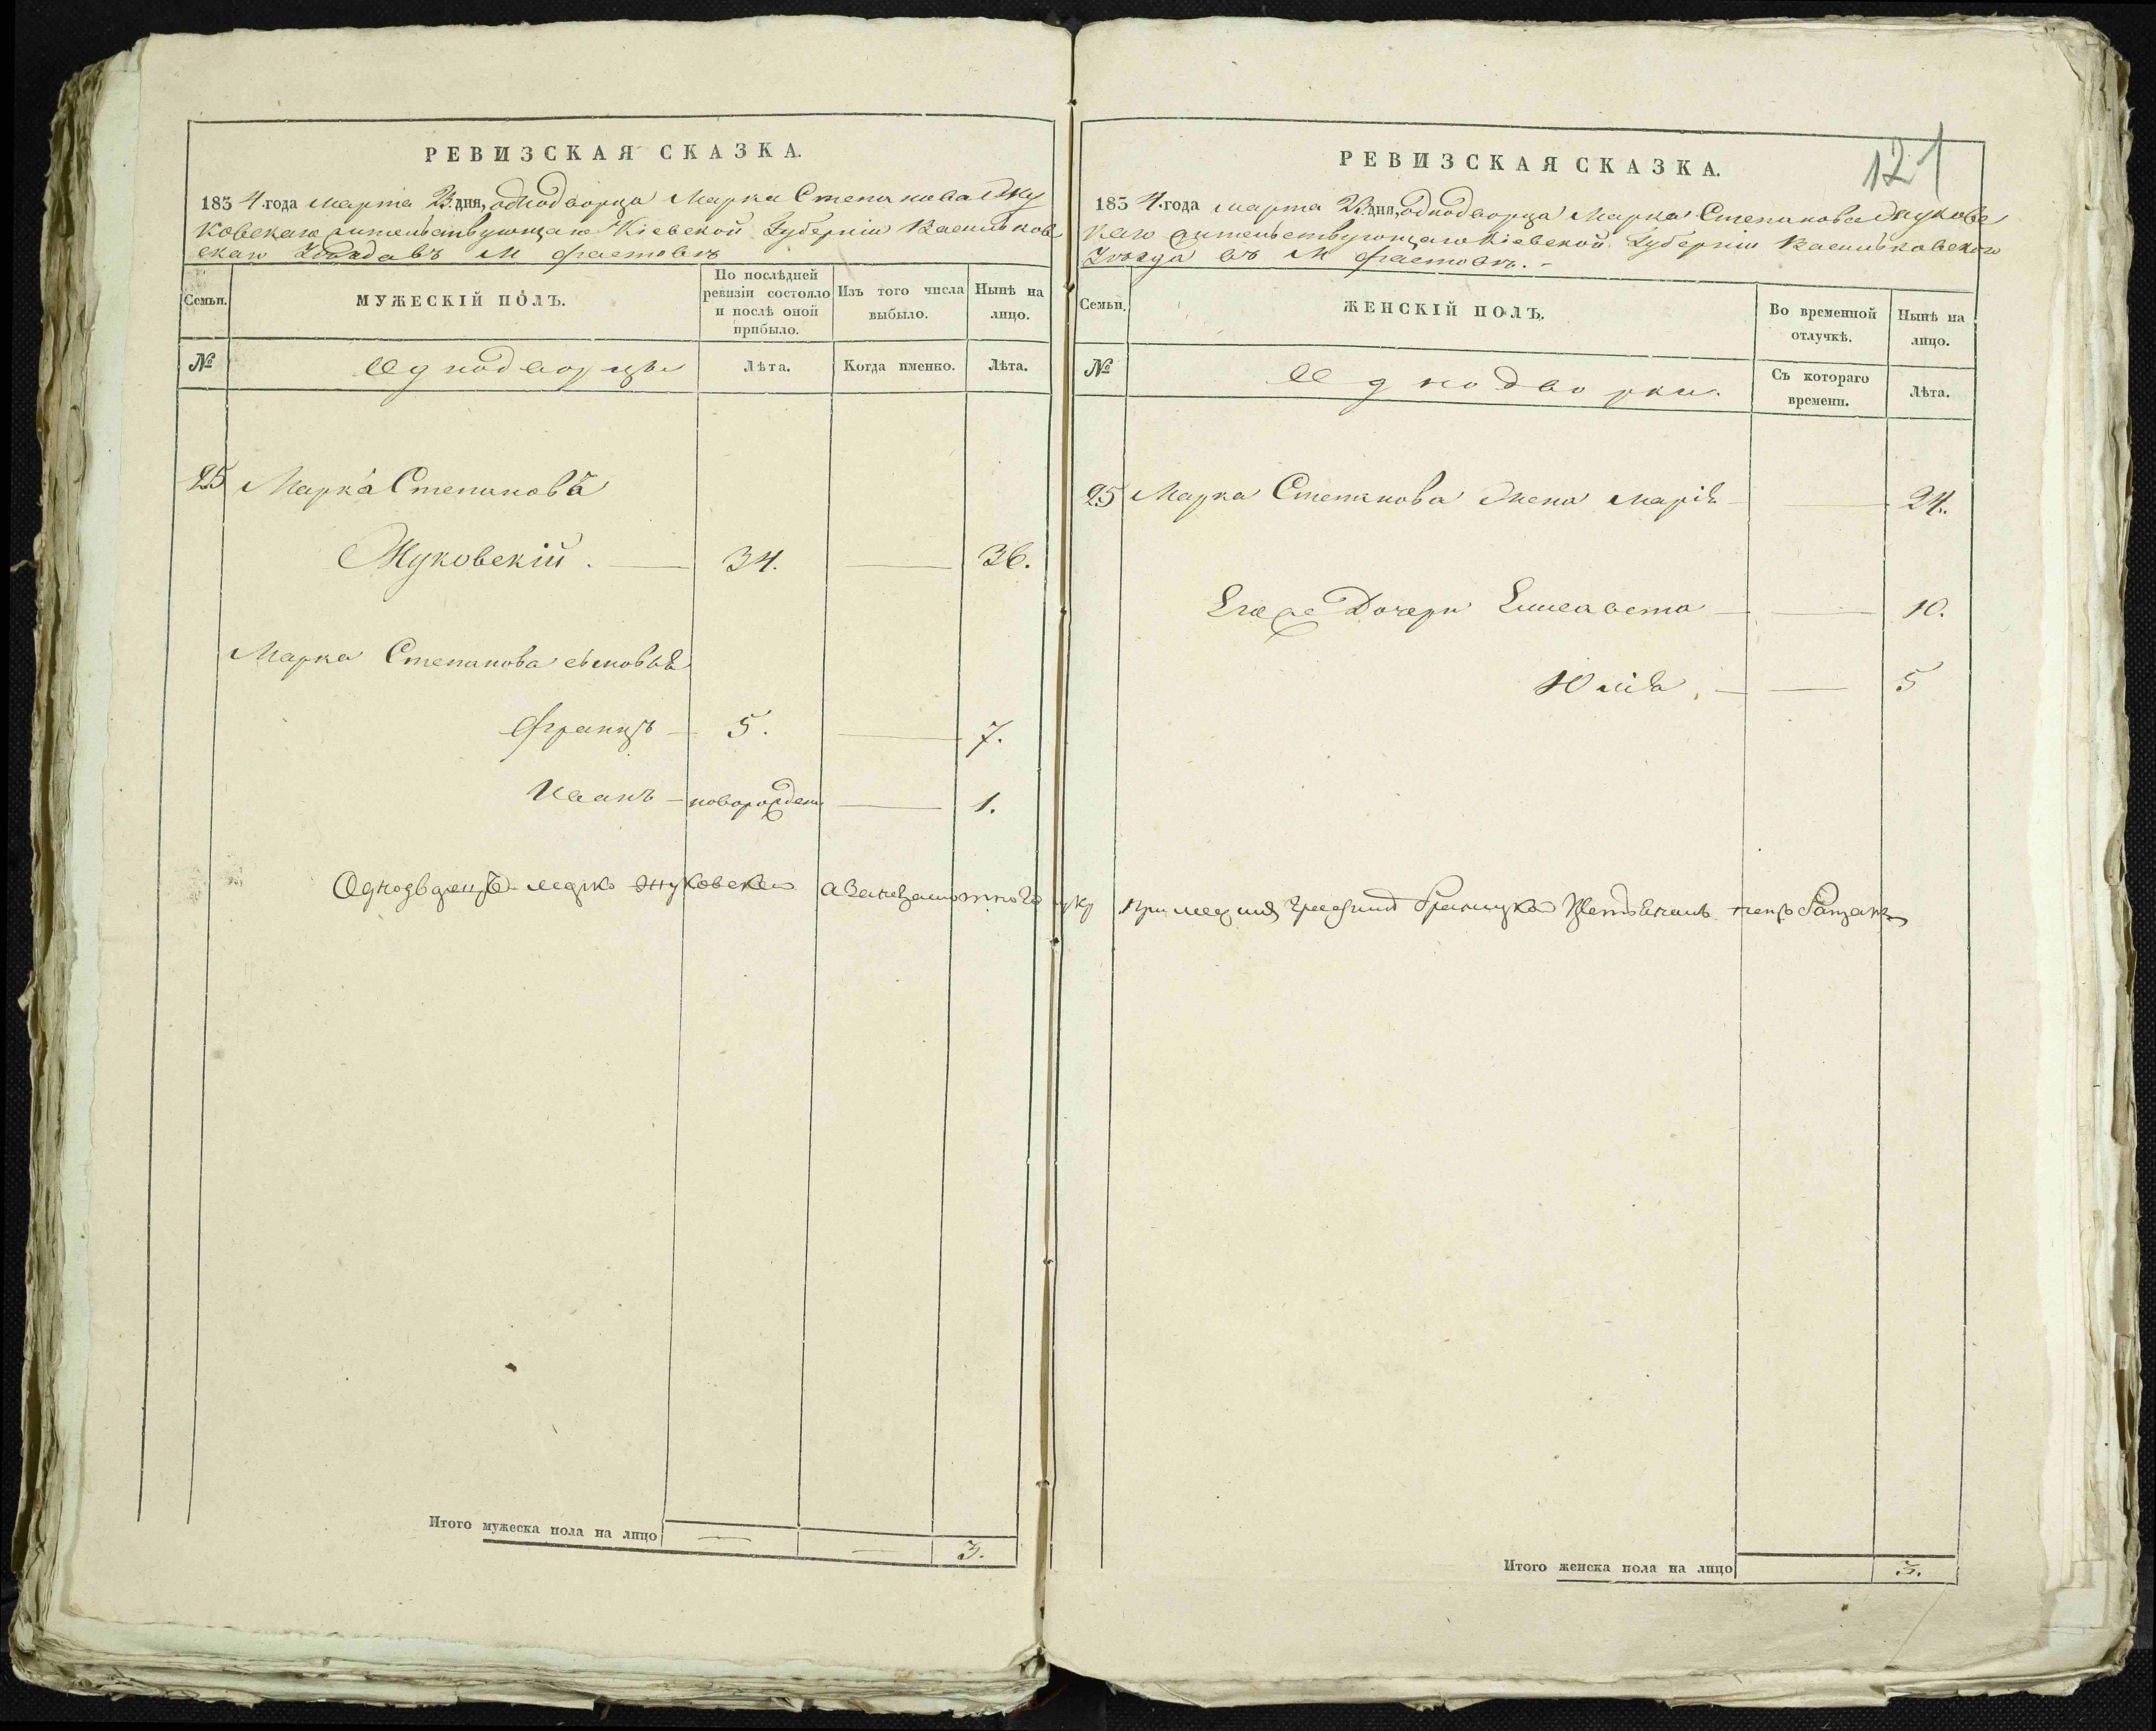 РЕВИЗСКАЯ СКАЗКА.
1834 года марта 23 дня, однодворца Марка Степанова Жу
ковскаго жительствующаго Кіевской Губерніи Васильков
скаго Уѣзда въ М Фастовѣ
Семьи.
МУЖЕСКІЙ ПОЛЪ.
По послѣдней ревизіи состояло и послѣ оной прибыло.
Изъ того числа выбыло.
Нынѣ на лицо.
№
Однодворцы
Лѣта.
Когда именно.
Лѣта.
25 Марка Степановъ
Жуковскій. 34. 36.
Марка Степанова сыновья
Францъ 5. 7.
Иванъ новорожден 1.
Однодворецъ Марко Жуковскій а занеграмотного
Итого мужеска пола на лицо 3.
121
РЕВИЗСКАЯ СКАЗКА.
1834 года марта 23 дня, однодворца Марка Степанова Жуковс
каго жительствующаго Кіевской Губерніи Васильковского
Уѣзда въ М Фастовѣ.
Семьи.
ЖЕНСКІЙ ПОЛЪ.
Во временной отлучкѣ.
Нынѣ на лицо.
№
Однодворки.
Съ котораго времени.
Лѣта.
25 Марка Степанова жена Марія 24.
Его же Дочери Елисавета 10.
Юлія 5
Итого женска пола на лицо 3.